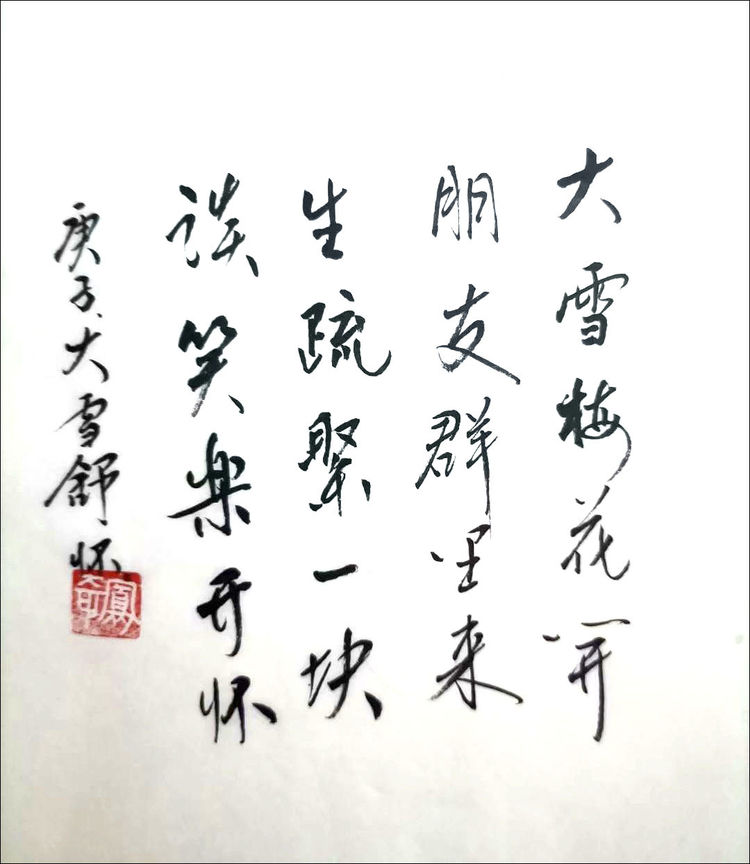 大雪梅花開
朋友群里来
生疏聚一块
谈笑樂开怀
庚子、大雪舒怀